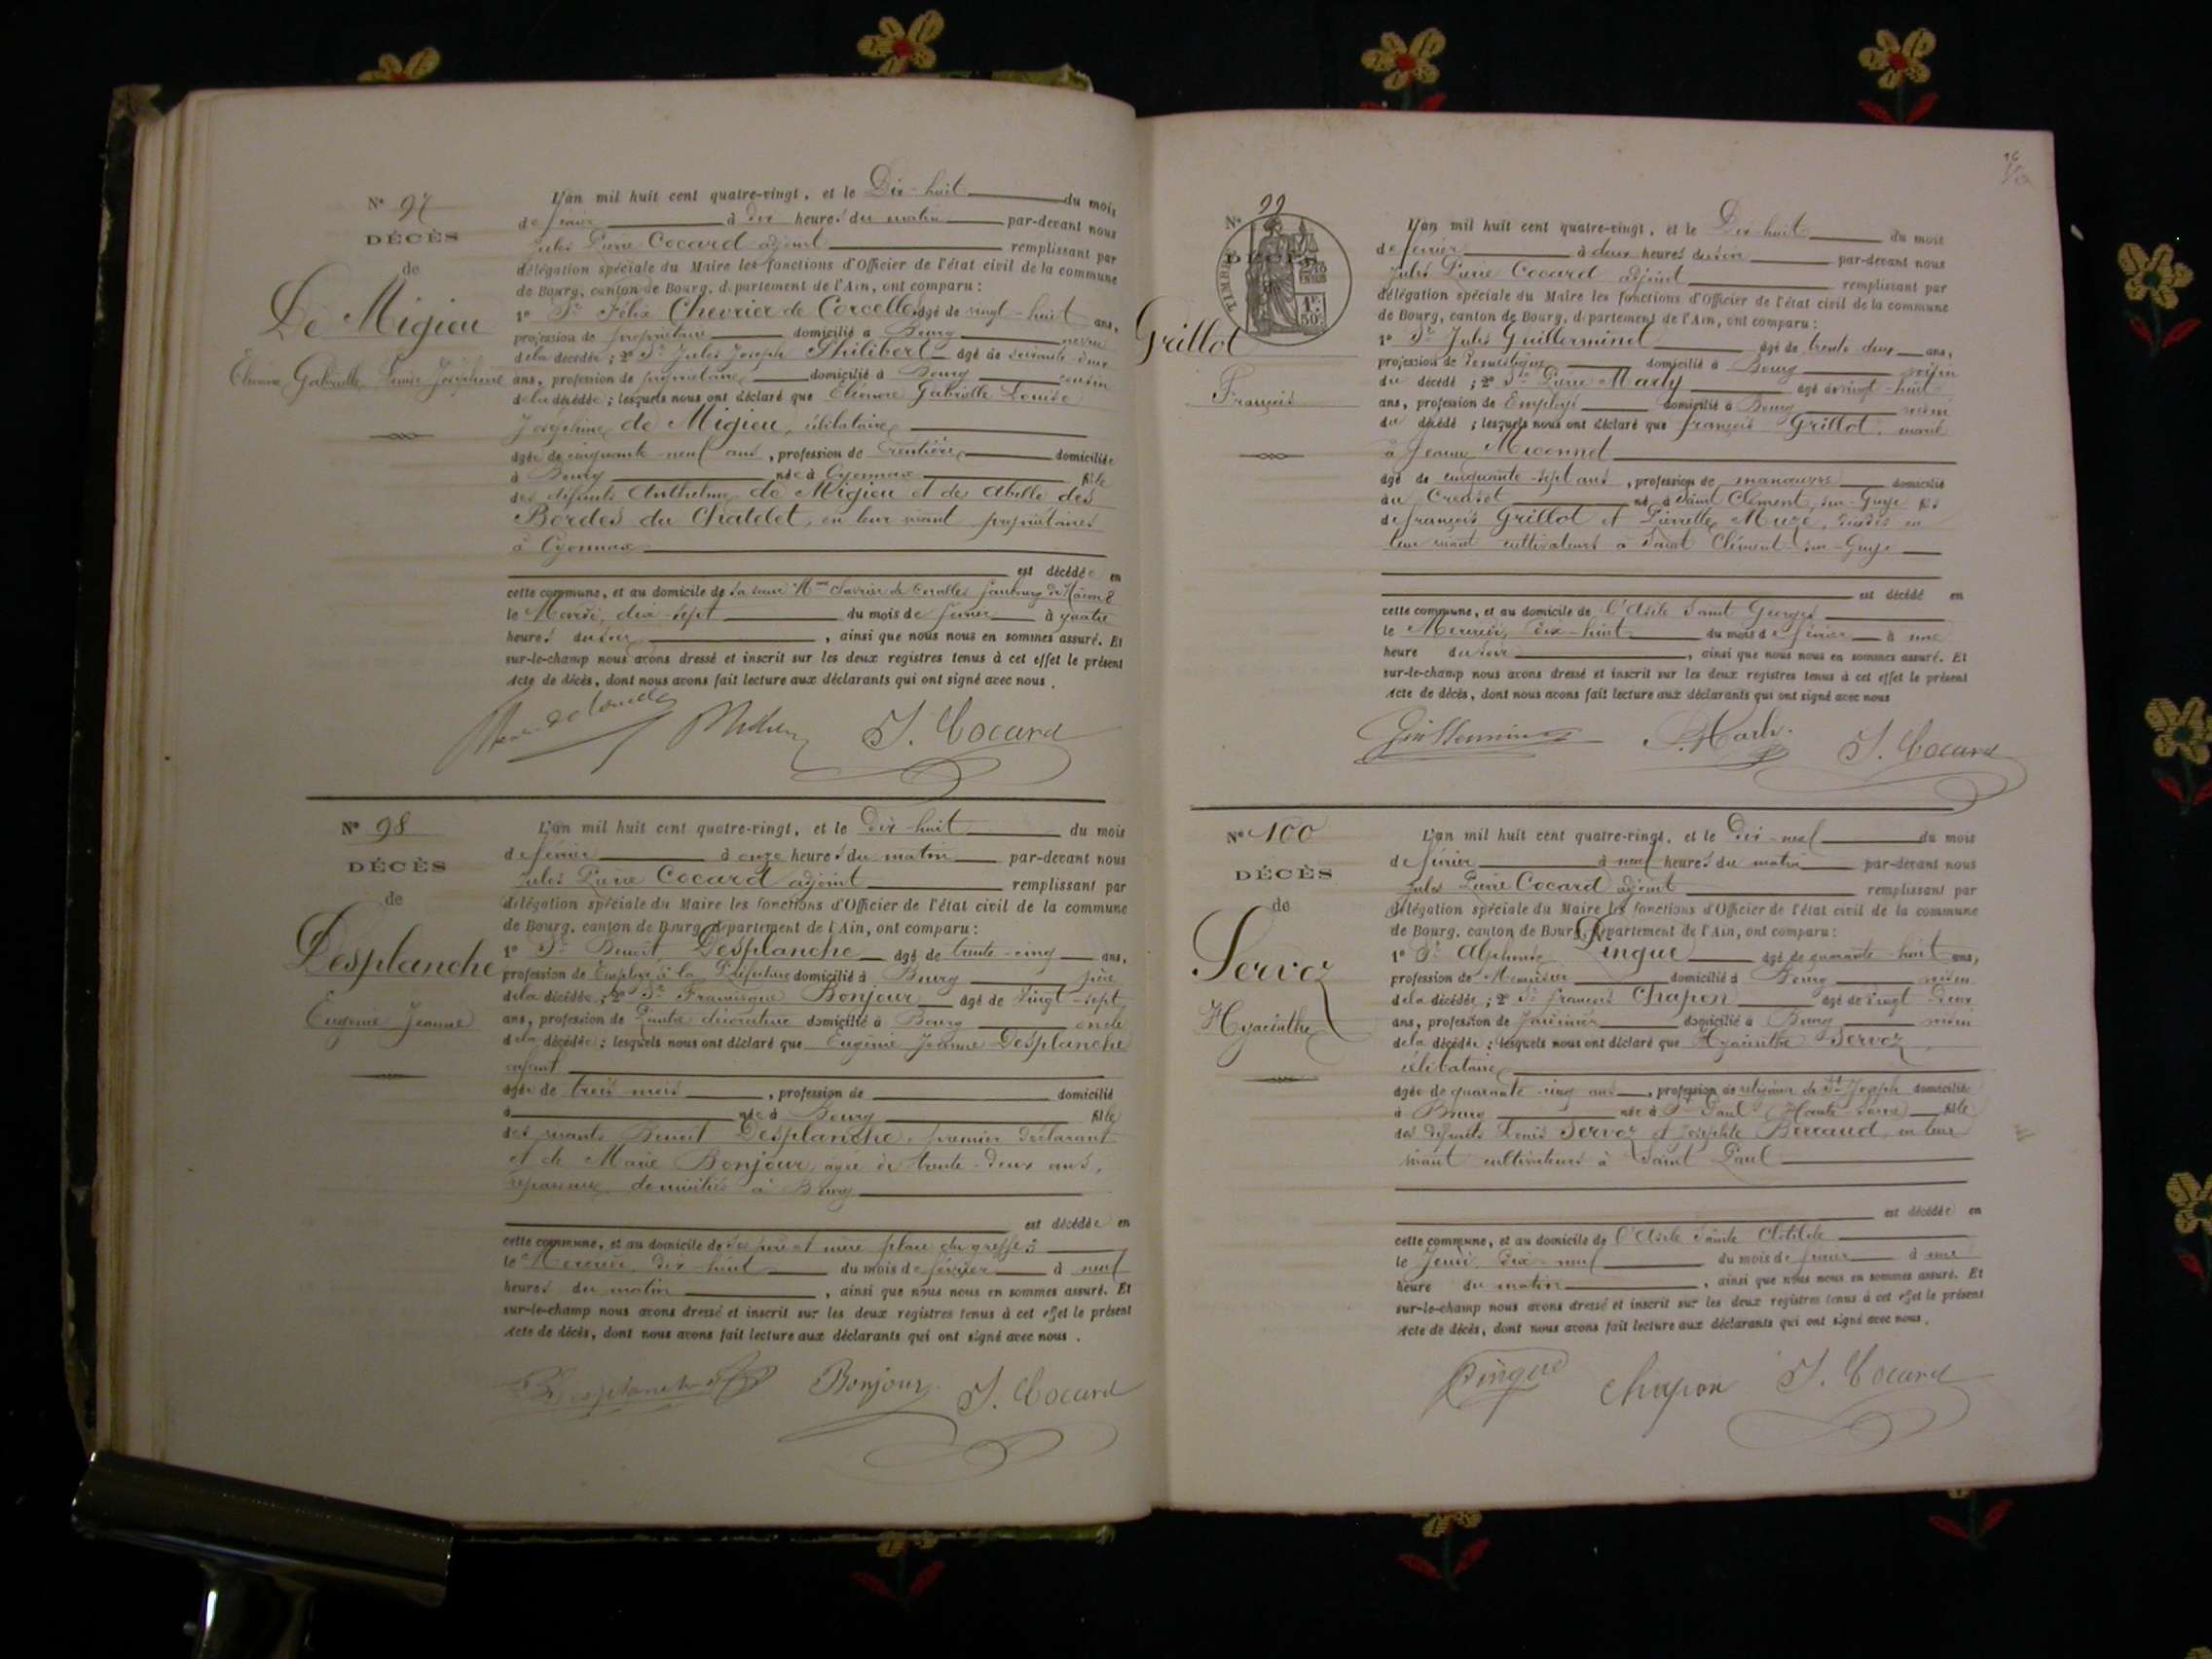 N° 97
DÉCÈS
de
De Migieu
Eléonore Gabrielle Louise Joséphine
L'an mil huit cent quatre-vingt, et le Dix-huit du mois
de février à dix heures du matin par-devant nous
Jules Pierre Cocard adjoint remplissant par
délégation spéciale du Maire les fonctions d'Officier de l'état civil de la commune
de Bourg, canton de Bourg, département de l'Ain, ont comparu :
1° Sr Félix Chevrier de Corcelles âgé de vingt-huit ans,
profession de propriétaire domicilié à Bourg neveu
de la décédée ; 2° Sr Jules Joseph Philibert âgé de soixante-deux
ans, profession de propriétaire domicilié à Bourg cousin
de la décédée ; lesquels nous ont déclaré que Eléonore Gabrielle Louise
Joséphine de Migieu, célibataire
âgée de cinquante-neuf ans, profession de rentière domiciliée
à Bourg née à Oyonnax fille
des défunts Anthelme de Migieu et de Abelle des
Bordes du Chatelet, en leur vivant propriétaires
à Oyonnax
est décédée en
cette commune, et au domicile de sa sœur Mme Chevrier de Corcelles faubourg de Mâcon 8
le Mardi, dix-sept du mois de février à quatre
heures du soir, ainsi que nous nous en sommes assuré. Et
sur-le-champ nous avons dressé et inscrit sur les deux registres tenus à cet effet le présent
Acte de décès, dont nous avons fait lecture aux déclarants qui ont signé avec nous.
J. Cocard
N° 98
DÉCÈS
de
Desplanche
Eugénie Jeanne
L'an mil huit cent quatre-vingt, et le dix-huit du mois
de février à onze heures du matin par-devant nous
Jules Pierre Cocard adjoint remplissant par
délégation spéciale du Maire les fonctions d'Officier de l'état civil de la commune
de Bourg, canton de Bourg, département de l'Ain, ont comparu :
1° Sr Benoît Desplanche âgé de trente-cinq ans,
profession de Employé à la Préfecture domicilié à Bourg père
de la décédée ; 2° Sr Francisque Bonjour âgé de vingt-sept
ans, profession de Peintre décorateur domicilié à Bourg oncle
de la décédée ; lesquels nous ont déclaré que Eugénie Jeanne Desplanche
enfant
âgée de trois mois, profession de domicilié
à née à Bourg fille
des vivants Benoît Desplanche, premier déclarant
et de Marie Bonjour, âgée de trente-deux ans,
repasseuse domiciliés à Bourg
est décédée en
cette commune, et au domicile de ses père et mère place du greffe 2
le Mercredi, dix-huit du mois de février à neuf
heures du matin, ainsi que nous nous en sommes assuré. Et
sur-le-champ nous avons dressé et inscrit sur les deux registres tenus à cet effet le présent
Acte de décès, dont nous avons fait lecture aux déclarants qui ont signé avec nous.
B Desplanche Bonjour J. Cocard
N° 99
DÉCÈS
TIMBRE
1F. 50c
Grillot
François
L'an mil huit cent quatre-vingt, et le Dix-huit du mois
de février à deux heures du soir par-devant nous
Jules Pierre Cocard adjoint remplissant par
délégation spéciale du Maire les fonctions d'Officier de l'état civil de la commune
de Bourg, canton de Bourg, département de l'Ain, ont comparu :
1° Sr Jules Guillerminet âgé de trente-deux ans,
profession de domestique domicilié à Bourg voisin
du décédé ; 2° Sr Pierre Marly âgé de vingt-huit
ans, profession de Employé domicilié à Bourg voisin
du décédé ; lesquels nous ont déclaré que François Grillot, marié
à Jeanne Miconnet
âgé de cinquante-sept ans, profession de manœuvre domicilié
au Creusot né à Saint Clément-sur-Guye fils
de François Grillot et Pierrette Muze, décédés en
leur vivant cultivateurs à Saint Clément-sur-Guye
est décédé en
cette commune, et au domicile de l'Asile Saint Georges
le Mercredi, dix-huit du mois de février à une
heure du soir, ainsi que nous nous en sommes assuré. Et
sur-le-champ nous avons dressé et inscrit sur les deux registres tenus à cet effet le présent
Acte de décès, dont nous avons fait lecture aux déclarants qui ont signé avec nous
Guillerminet P. Marly J. Cocard
N° 100
DÉCÈS
de
Servoz
Hyacinthe
L'an mil huit cent quatre-vingt, et le Dix-neuf du mois
de février à neuf heures du matin par-devant nous
Jules Pierre Cocard adjoint remplissant par
délégation spéciale du Maire les fonctions d'Officier de l'état civil de la commune
de Bourg, canton de Bourg, département de l'Ain, ont comparu :
1° Sr Alphonse Pingue âgé de quarante-huit ans,
profession de Menuisier domicilié à Bourg voisin
de la décédée ; 2° Sr François Chapon âgé de vingt-deux
ans, profession de Jardinier domicilié à Bourg voisin
de la décédée ; lesquels nous ont déclaré que Hyacinthe Servoz
célibataire
âgée de quarante-cinq ans, profession de religieuse de St Joseph domiciliée
à Bourg née à St Paul Haute-Savoie fille
des défunts Louis Servoz et Josephte Berraud, en leur
vivant cultivateurs à Saint Paul
est décédée en
cette commune, et au domicile de l'Asile Sainte Clotilde
le Jeudi, dix-neuf du mois de février à une
heure du matin, ainsi que nous nous en sommes assuré. Et
sur-le-champ nous avons dressé et inscrit sur les deux registres tenus à cet effet le présent
Acte de décès, dont nous avons fait lecture aux déclarants qui ont signé avec nous.
Pingue Chapon J. Cocard